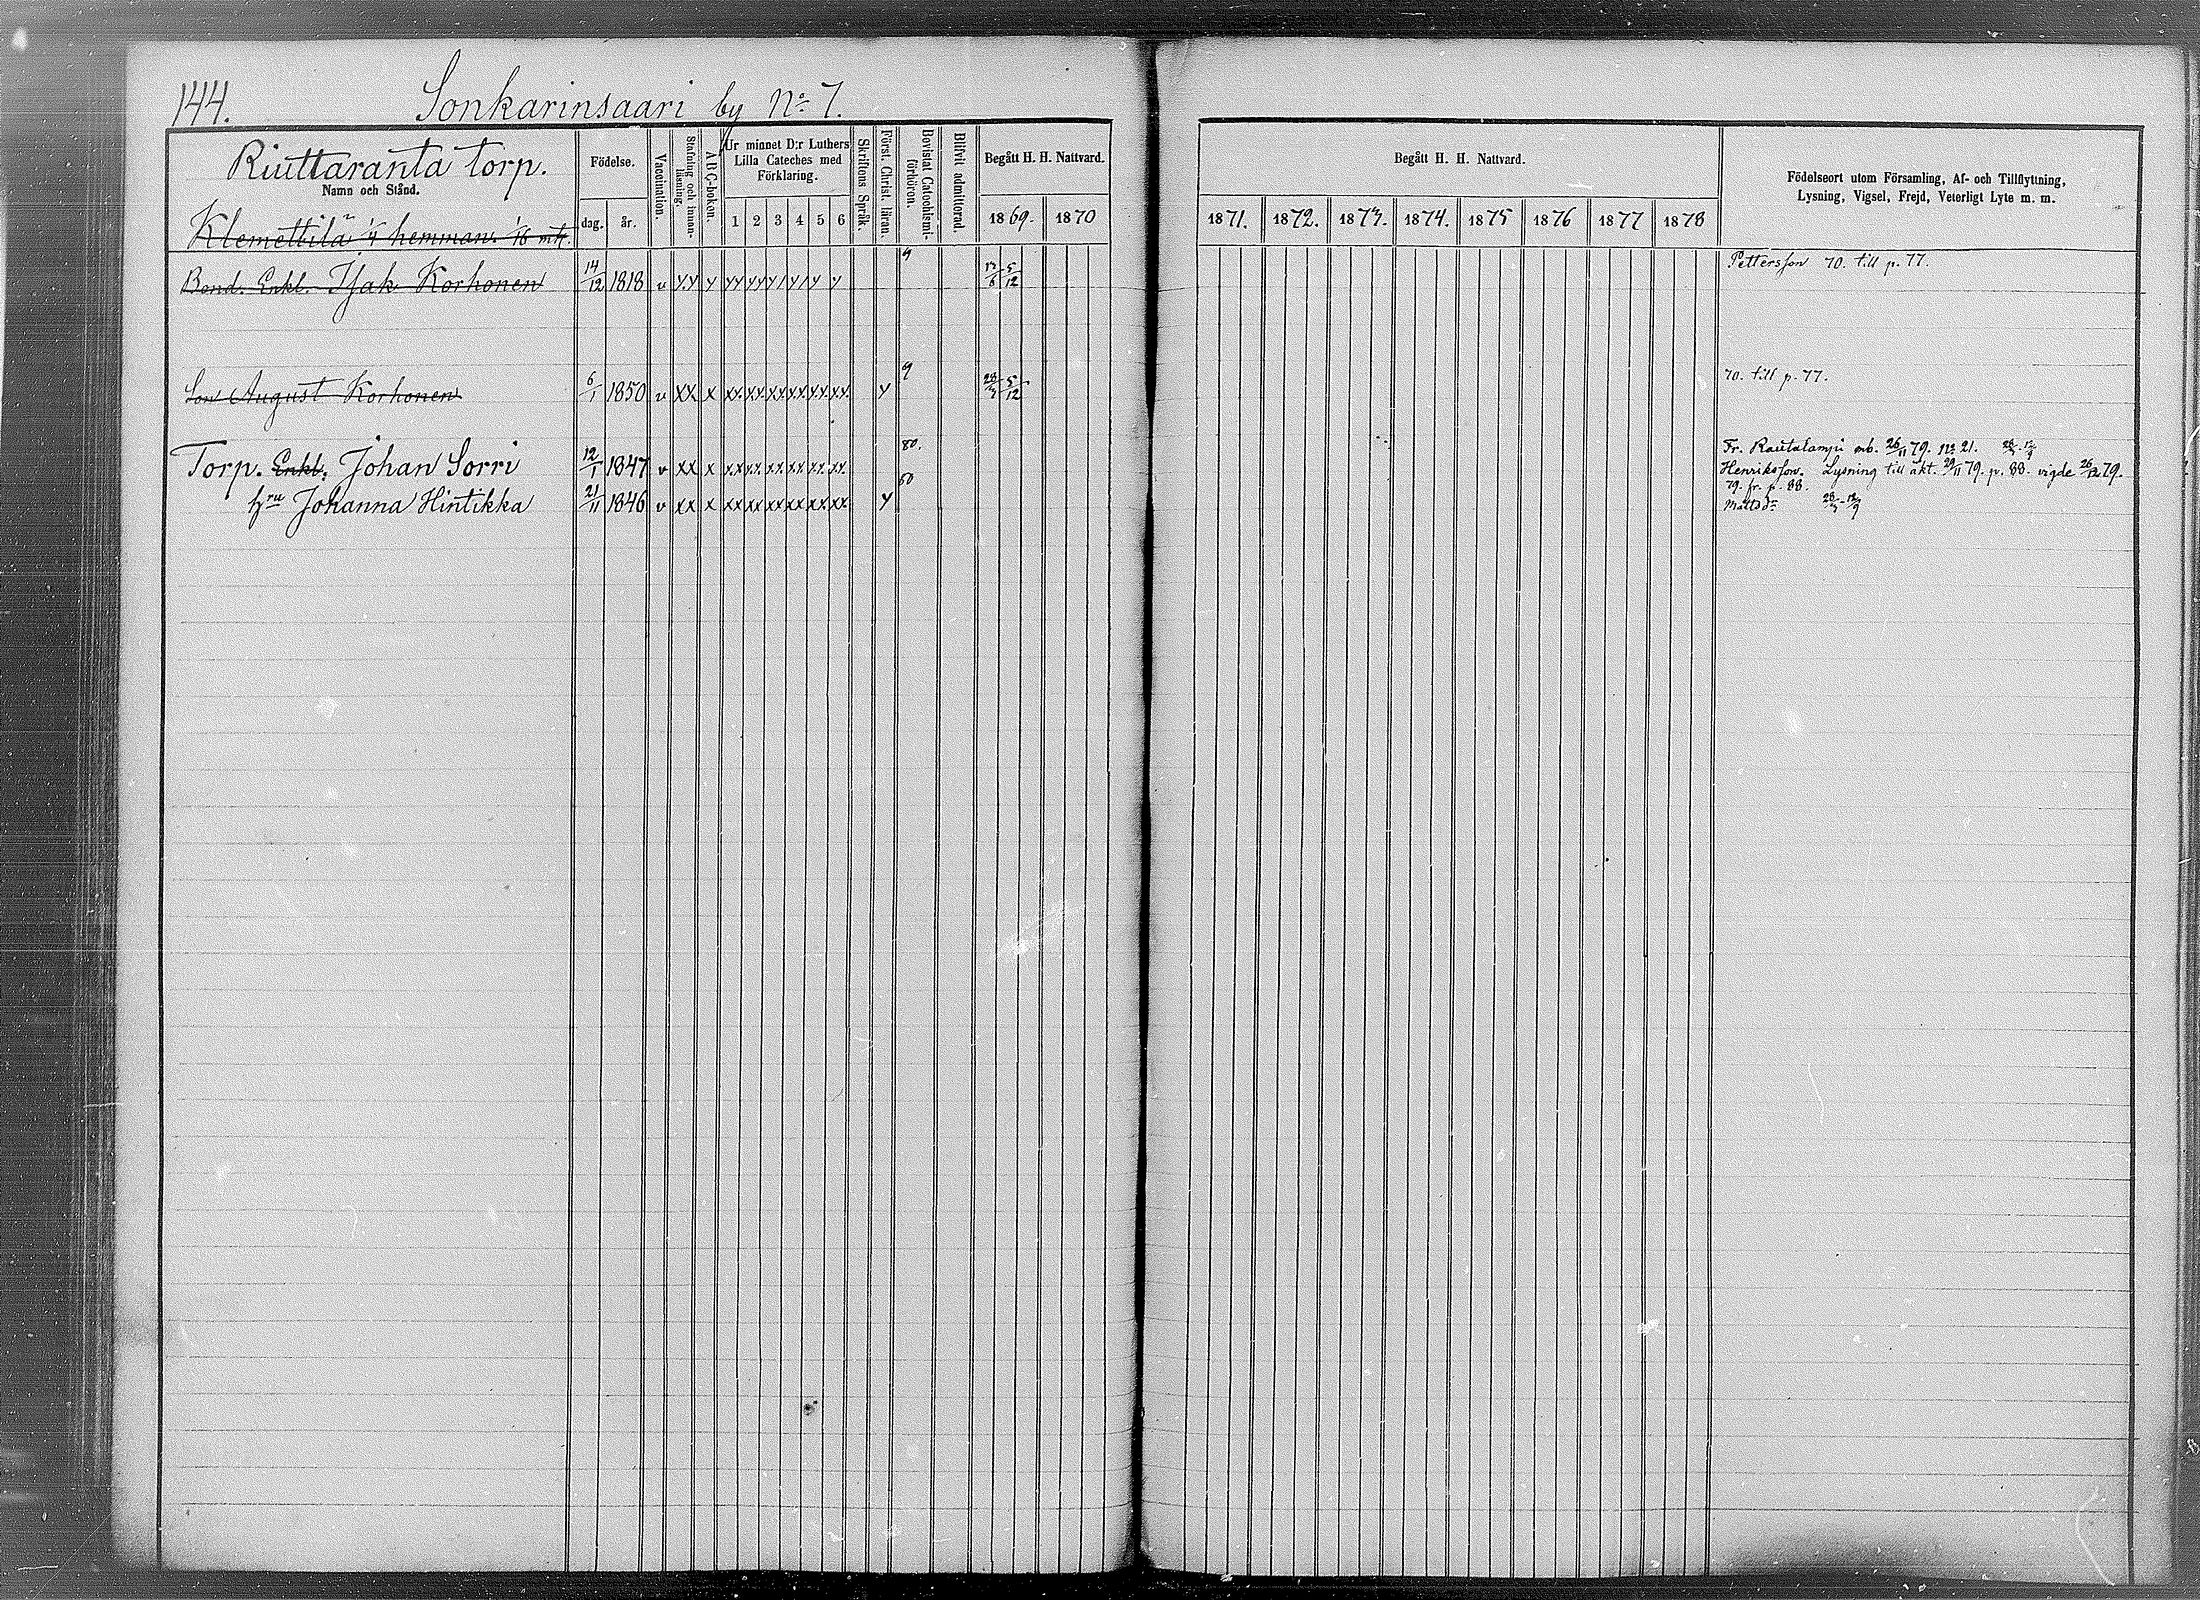 144. Sonkarinsaari by No 7.
Riuttaranta torp.
Namn och Stånd.
Klemettilä 1/4 hemman. 1/16 mtl.
Födelse.
dag. år.
Vaccination.
Stafning och innanläsning.
ABC-boken.
Ur minnet D:r Luthers
Lilla Cateches med
Förklaring.
1 2 3 4 5 6
Skriftens Språk.
Först. Christ. läran.
Bevistat Catechismiförhören.
Blifvit admitterad.
Begått H. H. Nattvard.
1869. 1870
Begått H. H. Nattvard.
1871. 1872. 1873. 1874. 1875 1876 1877 1878
Födelseort utom Församling, Af- och Tillflyttning,
Lysning, Vigsel, Frejd, Veterligt Lyte m. m.
Bond. Enkl. Isak Korhonen 14/12 1818 v 9 5/12 Pettersson 70. till p. 77.
Son August Korhonen 6/1 1850 v xx x xx xx xx xx xx xx y 9 5/12 70. till p. 77.
Torp. Enkl. Johan Sorri 12/1 1847 v xx x xx xx xx xx xx xx 80. Fr. Rautalampi mb. 26/11 79. no 21.
Henriksson. Lysning till äkt. 29/11 79. p. 88. vigde 26/12 79.
79. fr. p. 88.
hru Johanna Hintikka 21/11 1846 v xx x xx xx xx xx xx xx y Mattsdr